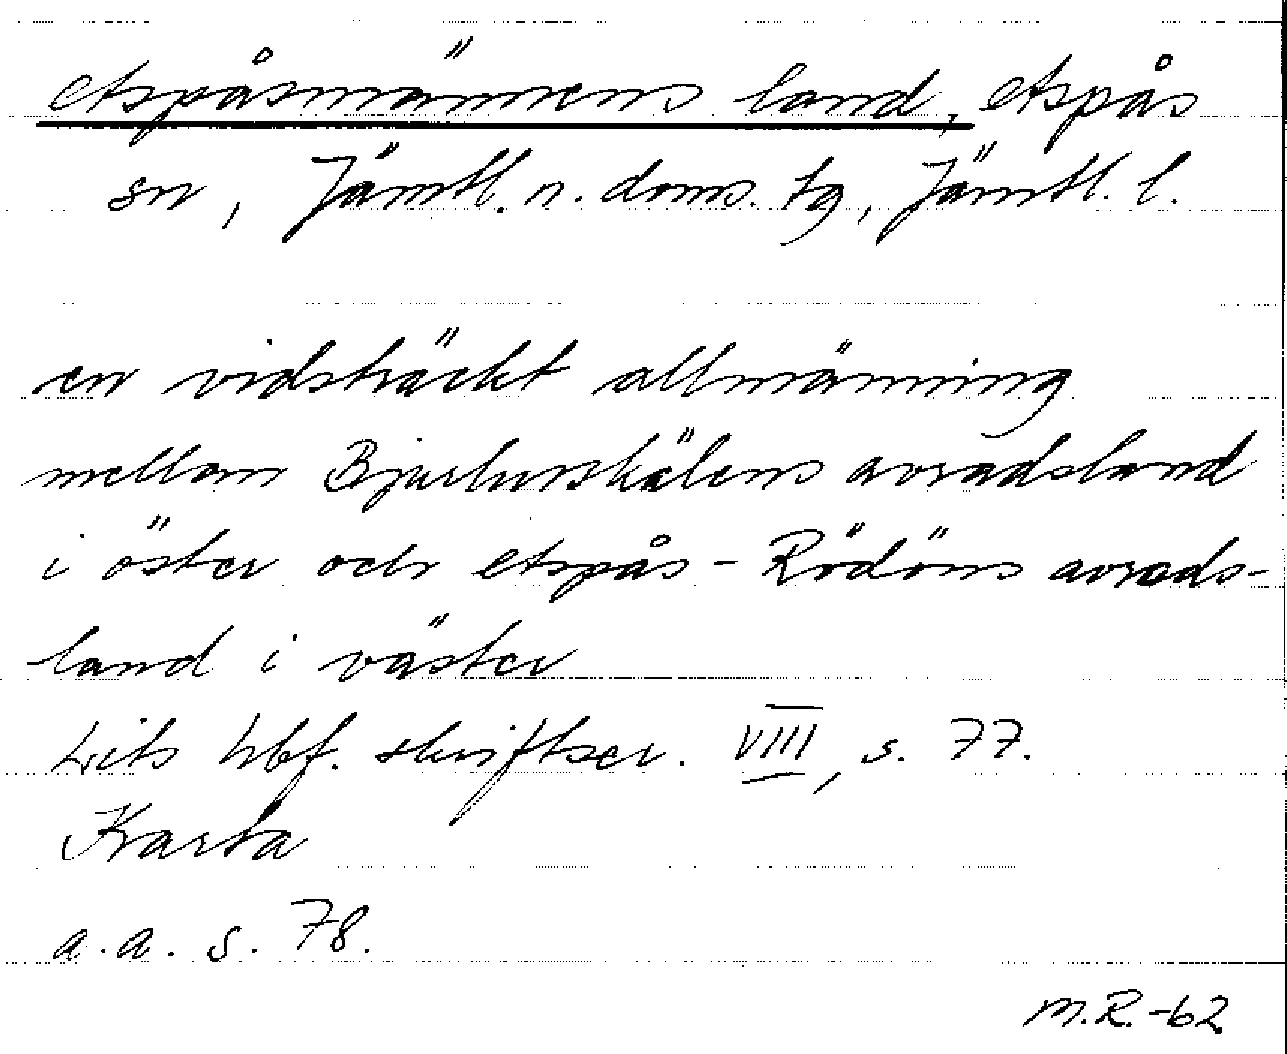 Aspåsmännens land, Aspås
sn, Jämtl. n. doms. tg, Jämtl. l.
en vidsträckt allmänning
mellan Bjurhuskälens avradsland
i öster och Aspås-Rödöns avrads-
land i väster
Lits hbf. skriftser. VIII, s. 77.
Karta
a.a. s. 78.
M.R.-62